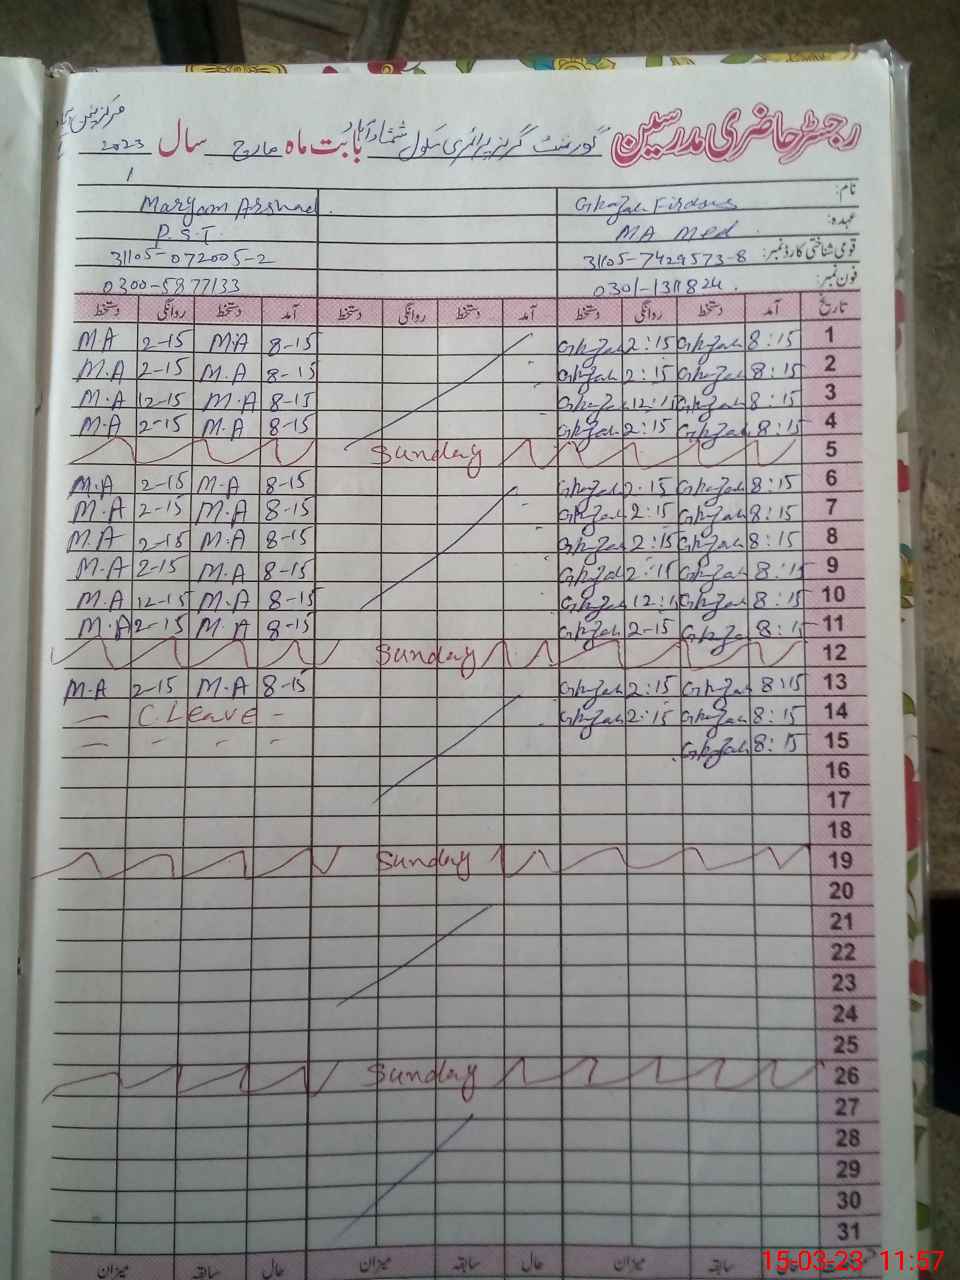 رجسٹر حاضری مدرسین گورنمنٹ گرلز پرائمری سکول شمشاد آباد بابت ماہ مارچ سال 2023
نام: Ghazal Firdous Maryam Arshad
عہدہ: MA Med P.S.T.
قومی شناختی کارڈ نمبر: 31105-7429573-8 31105-072005-2
فون نمبر: 0301-1311824 0300-5977133
تاریخ آمد دستخط روانگی دستخط آمد دستخط روانگی دستخط آمد دستخط روانگی دستخط
1 8:15 Ghazal 2:15 Ghazal 8-15 M.A 2-15 M.A
2 8:15 Ghazal 2:15 Ghazal 8-15 M.A 2-15 M.A
3 8:15 Ghazal 12:15 Ghazal 8-15 M.A 12-15 M.A
4 8:15 Ghazal 2:15 Ghazal 8-15 M.A 2-15 M.A
5 Sunday
6 8:15 Ghazal 2:15 Ghazal 8-15 M.A 2-15 M.A
7 8:15 Ghazal 2:15 Ghazal 8-15 M.A 2-15 M.A
8 8:15 Ghazal 2:15 Ghazal 8-15 M.A 2-15 M.A
9 8:15 Ghazal 2:15 Ghazal 8-15 M.A 2-15 M.A
10 8:15 Ghazal 12:15 Ghazal 8-15 M.A 12-15 M.A
11 8:15 Ghazal 2-15 Ghazal 8-15 M.A 2-15 M.A
12 Sunday
13 8:15 Ghazal 2:15 Ghazal 8-15 M.A 2-15 M.A
14 8:15 Ghazal 2:15 Ghazal - C.Leave -
15 8:15 Ghazal - - - -
16
17
18
19 Sunday
20
21
22
23
24
25
26 Sunday
27
28
29
30
31
حال سابقہ میزان حال سابقہ میزان حال سابقہ میزان
15-03-23 11:57